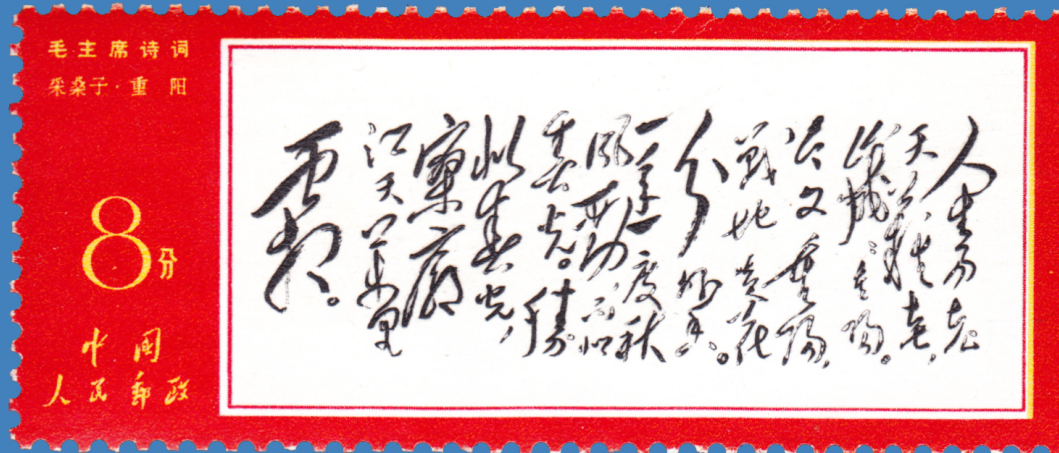 毛主席诗词
采桑子·重阳
8分
中国
人民郵政
人生易老
天難老，
歲歲重陽。
今又重陽，
戰地黄花
分外香。
一年一度秋
風勁，不似
春光。勝
似春光，
寥廓
江天萬里
霜。